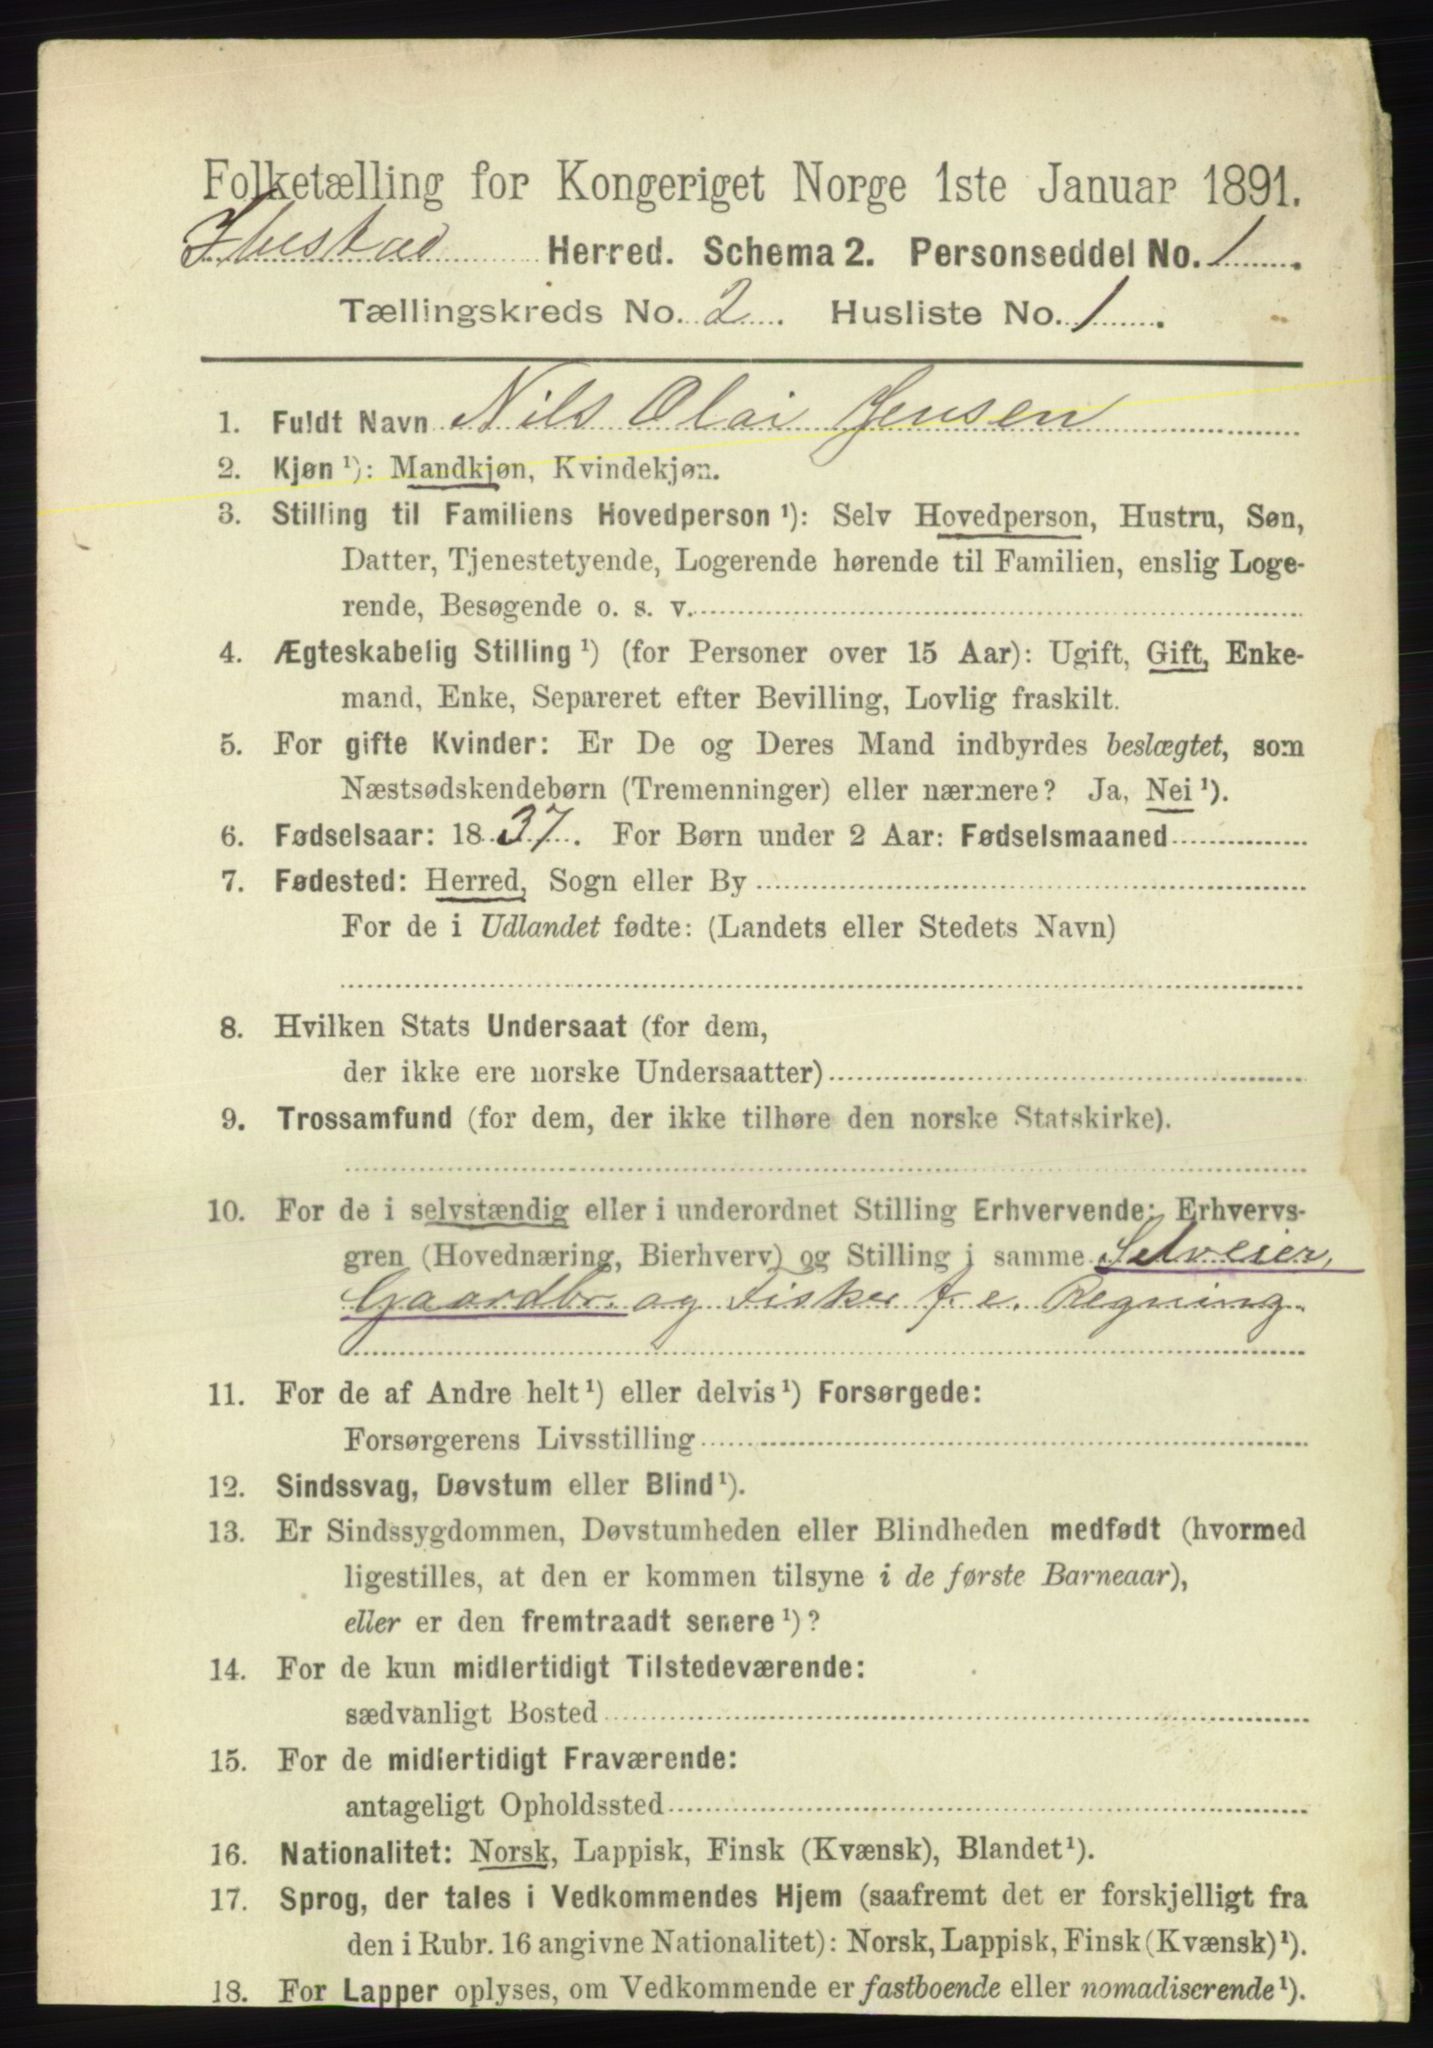 Folketælling for Kongeriget Norge 1ste Januar 1891.
Ibestad Herred. Schema 2. Personseddel No. 1.
Tællingskreds No. 2. Husliste No. 1.
1. Fuldt Navn Nils Olai Jensen
2. Kjøn ¹): Mandkjøn, Kvindekjøn.
3. Stilling til Familiens Hovedperson ¹): Selv Hovedperson, Hustru, Søn,
Datter, Tjenestetyende, Logerende hørende til Familien, enslig Loge-
rende, Besøgende o. s. v.
4. Ægteskabelig Stilling ¹) (for Personer over 15 Aar): Ugift, Gift, Enke-
mand, Enke, Separeret efter Bevilling, Lovlig fraskilt.
5. For gifte Kvinder: Er De og Deres Mand indbyrdes beslægtet, som
Næstsødskendebørn (Tremenninger) eller nærmere? Ja, Nei ¹).
6. Fødselsaar: 1837. For Børn under 2 Aar: Fødselsmaaned
7. Fødested: Herred, Sogn eller By
For de i Udlandet fødte: (Landets eller Stedets Navn)
8. Hvilken Stats Undersaat (for dem,
der ikke ere norske Undersaatter)
9. Trossamfund (for dem, der ikke tilhøre den norske Statskirke).
10. For de i selvstændig eller i underordnet Stilling Erhvervende: Erhvervs-
gren (Hovednæring, Bierhverv) og Stilling i samme Selveier,
Gaardbr. og Fisker f. e. Regning
11. For de af Andre helt ¹) eller delvis ¹) Forsørgede:
Forsørgerens Livsstilling
12. Sindssvag, Døvstum eller Blind ¹).
13. Er Sindssygdommen, Døvstumheden eller Blindheden medfødt (hvormed
ligestilles, at den er kommen tilsyne i de første Barneaar),
eller er den fremtraadt senere ¹)?
14. For de kun midlertidigt Tilstedeværende:
sædvanligt Bosted
15. For de midlertidigt Fraværende:
antageligt Opholdssted
16. Nationalitet: Norsk, Lappisk, Finsk (Kvænsk), Blandet ¹).
17. Sprog, der tales i Vedkommendes Hjem (saafremt det er forskjelligt fra
den i Rubr. 16 angivne Nationalitet): Norsk, Lappisk, Finsk (Kvænsk) ¹).
18. For Lapper oplyses, om Vedkommende er fastboende eller nomadiserende ¹).